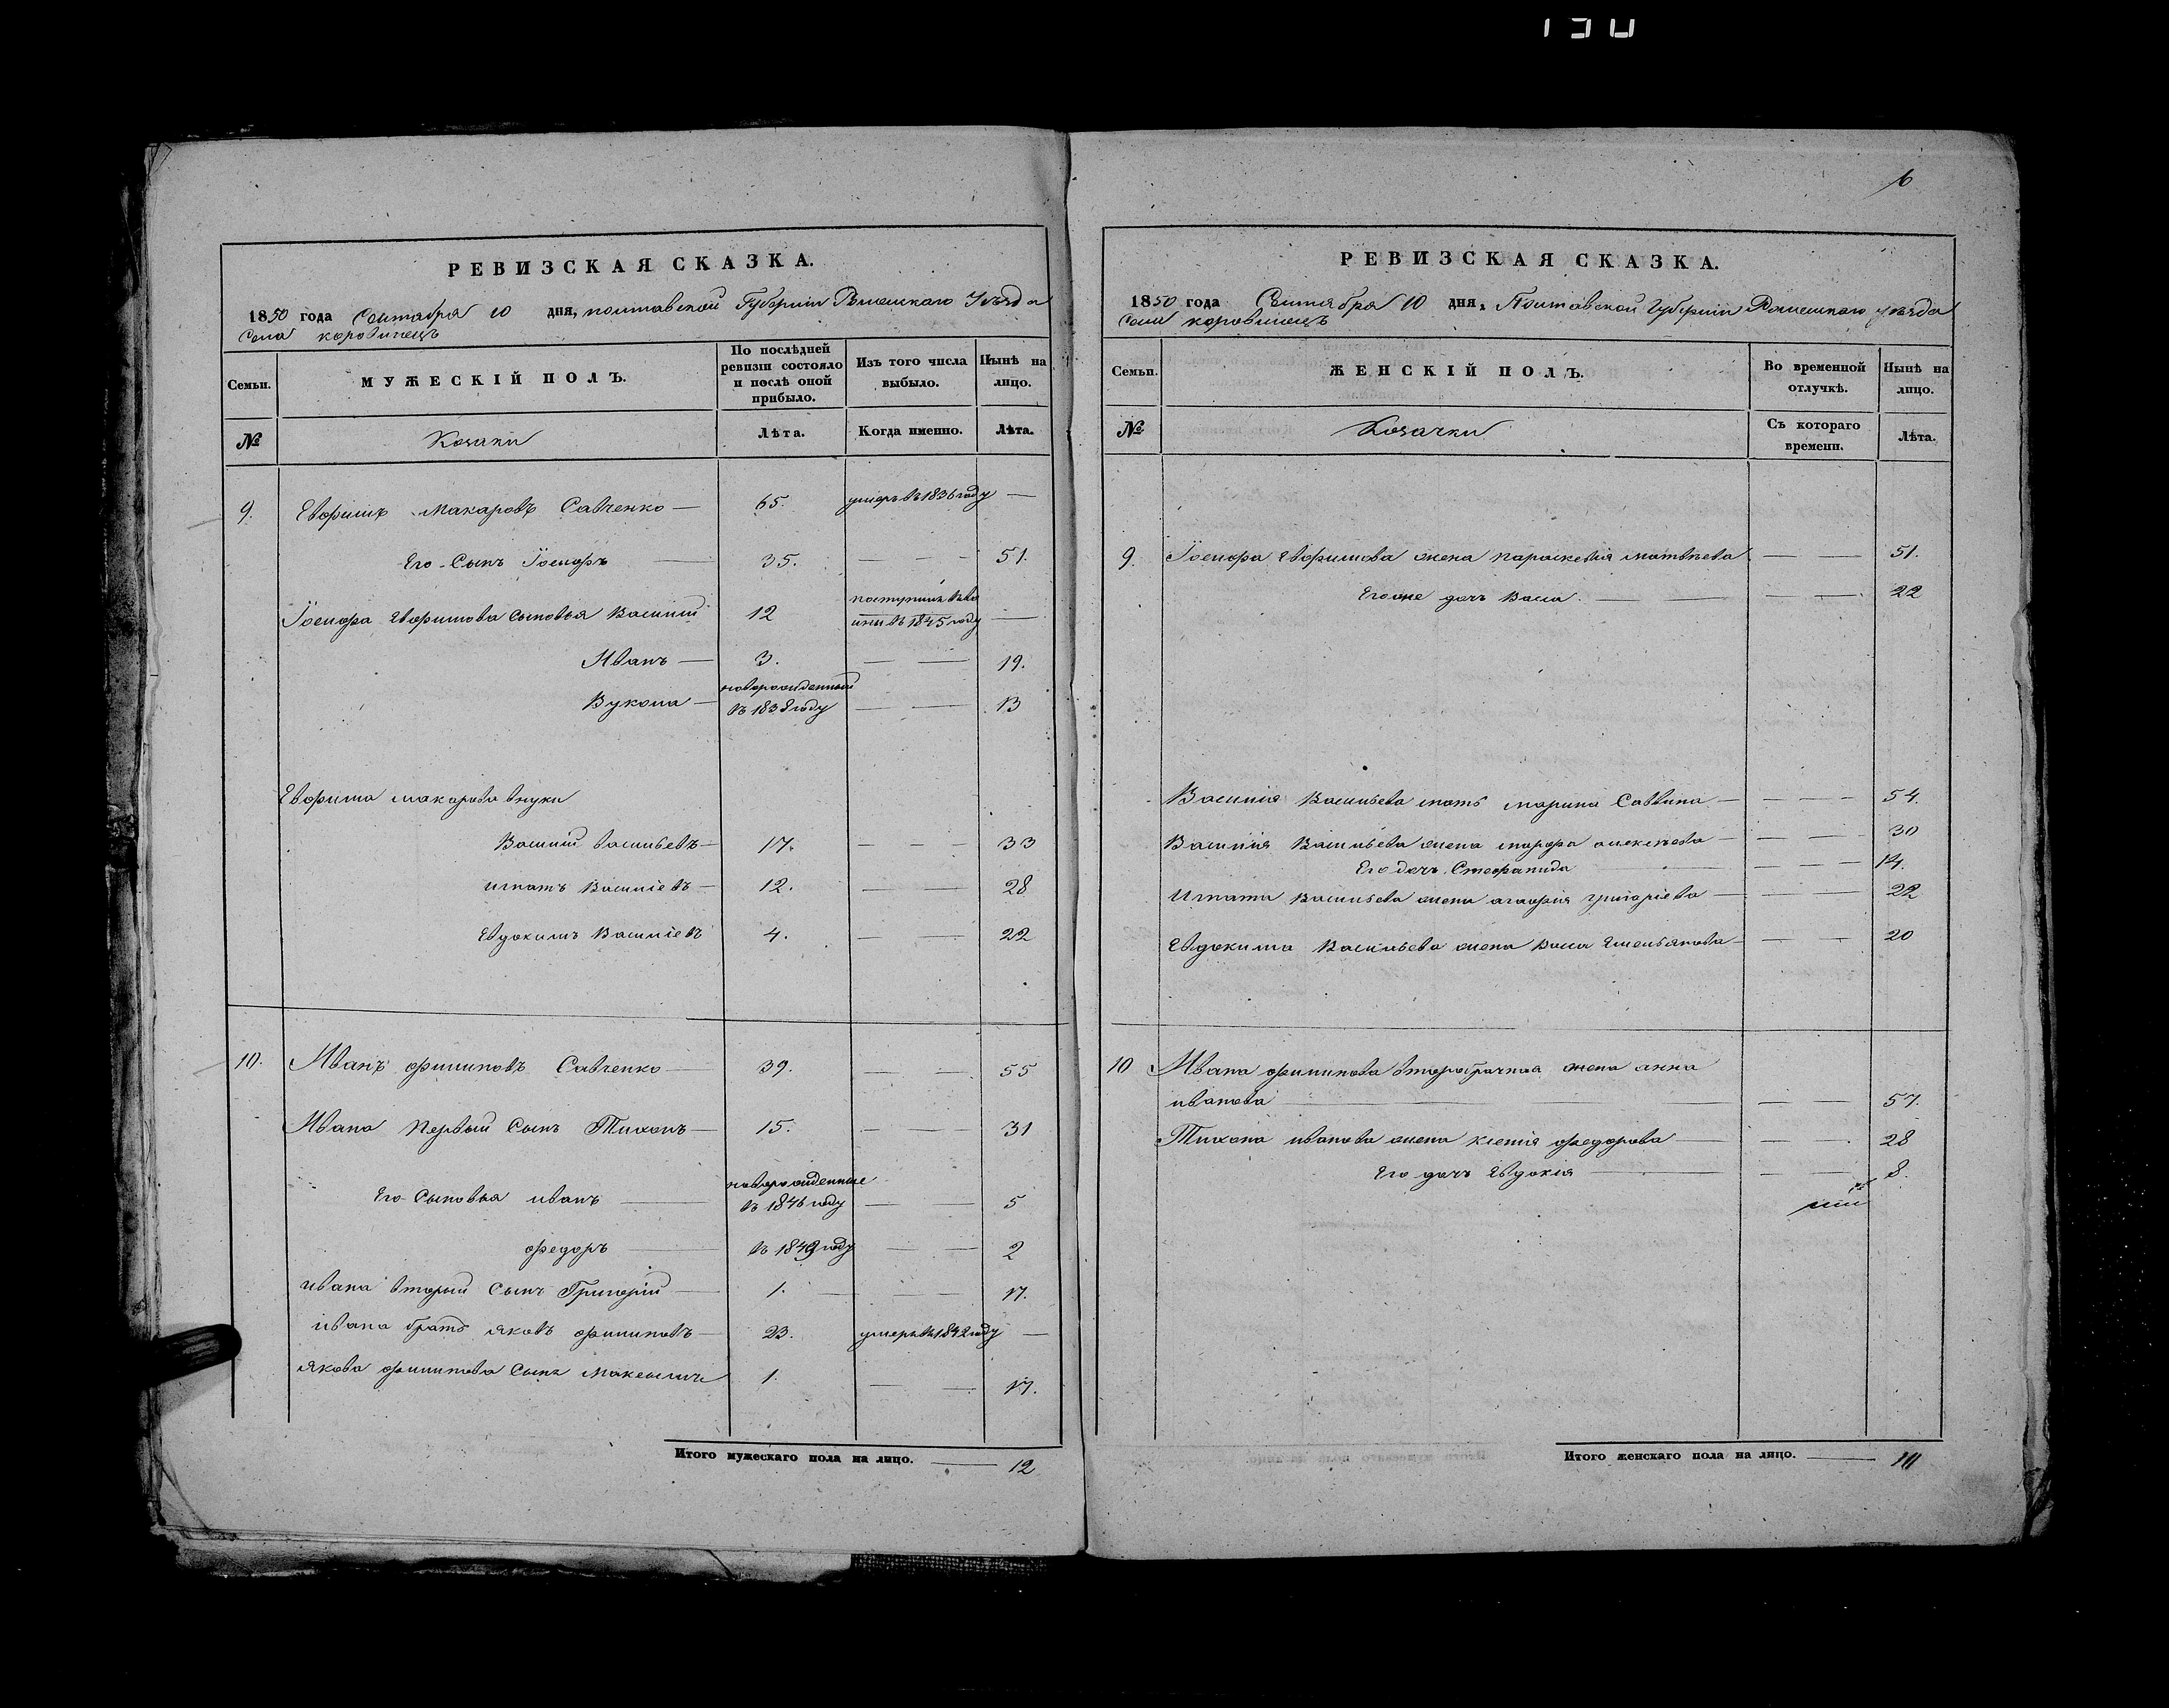 130
6
РЕВИЗСКАЯ СКАЗКА.
1850 года Сентабря 10 дня, полтавской Губерніи Роменскаго Уѣзда
Села коровинецъ
Семьи.
МУЖЕСКІЙ ПОЛЪ.
По послѣдней ревизіи состояло и послѣ оной прибыло.
Изъ того числа выбыло.
Нынѣ на лицо.
№
Козаки
Лѣта.
Когда именно.
Лѣта.
9. Ефримъ Макаровъ Савченко — 65. умеръ въ 1836 году —
Его Сынъ Іосифъ — 35. — — — 51.
Іосифа Ефримова сыновья Василий 12
въ 1845 году —
Иванъ — 3. — — 19.
новорожденный
Вукола — въ 1838 году — — 13
Ефрима макарова внуки
Василий васильевъ — 17. — — — 33
игнатъ Василіевъ — 12. — — 28
Евдокимъ Василіевъ 4. — — 22
10. Иванъ филиповъ Савченко — 39. — — 55
Ивана Первый Сынъ Тихонъ — 15. — — 31
новорожденные
Его Сыновья иванъ — въ 1846 году — — 5
федоръ — въ 1849 году — — 2
ивана вторый Сынъ Григорій — 1. — — 17.
ивана братъ яковъ филиповъ — 23. умеръ въ 1842 году —
якова филипова Сынъ Максимъ 1. — — 17.
Итого мужескаго пола на лицо. — 12
РЕВИЗСКАЯ СКАЗКА.
1850 года Сентября 10 дня, Полтавской Губерніи Роменскаго уѣзда
Села коровинецъ
Семьи.
ЖЕНСКІЙ ПОЛЪ.
Во временной отлучкѣ.
Нынѣ на лицо.
№
Козачки
Съ котораго времени.
Лѣта.
9. Іосифа Ефримова жена параскевія матвѣева — — 51.
Его же дочь Васса. — — — 22
Василія Васильева мать марина Саввина — — — — 54.
Василія Васильева жена марфа алексѣева — — — 30
Его дочь Стефанида — — — 14.
Игната Васильева жена агафія григоріева — — — 22
Евдокима Васильева жена Васса Емельянова — — — 20
10 Ивана филипова второбрачная жена анна
иванова — — — 57.
Тихона иванова жена ксенія федорова — — . 28
Его дочь Евдокія — — 8.
Итого женскаго пола на лицо. —